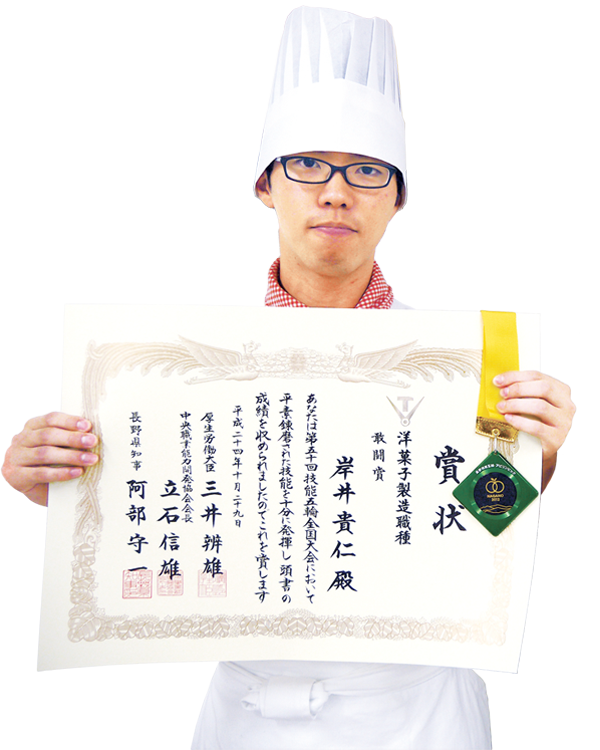 賞状
洋菓子製造職種
敢闘賞
岸井貴仁殿
あなたは第五十回技能五輪全国大会において
平素錬磨された技能を十分に発揮し頭書の
成績を収められましたのでこれを賞します
平成二十四年十月二十九日
厚生労働大臣 三井辨雄
中央職業能力開発協会会長 立石信雄
長野県知事 阿部守一
NAGANO
2012